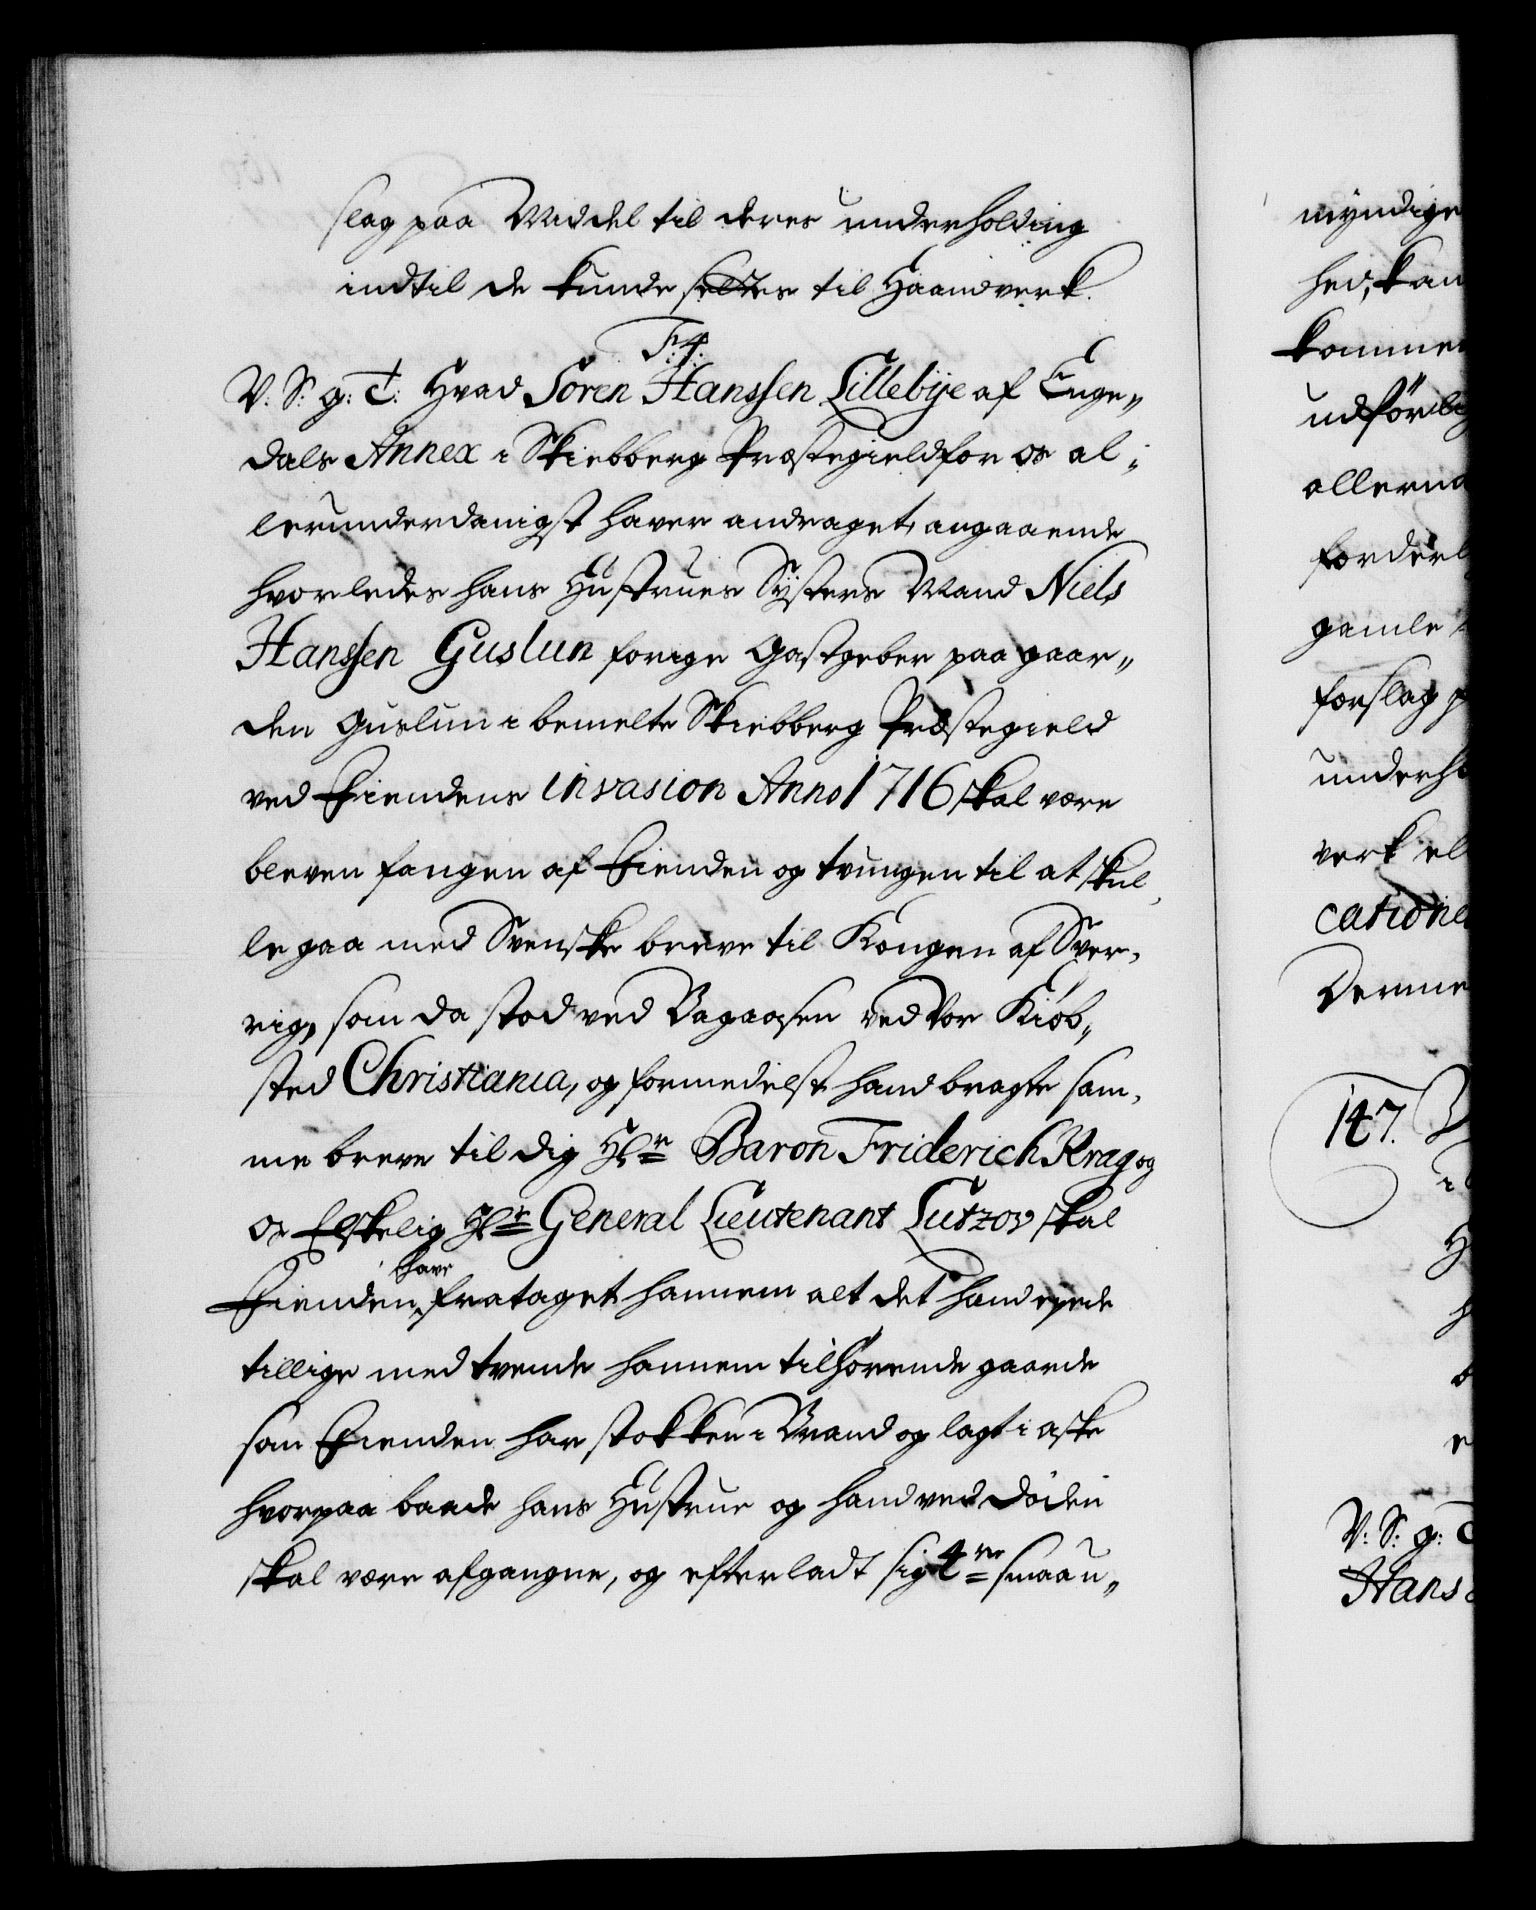 slag paa Middel til deres underholding
indtil de kunde settes til Haandverk.
F. 4.
V. S: g: T: Hvad Sören Hanssen Lillebÿe af Enge„
dals Annex i Skiebberg Præstegield for os al„
lerunderdanigst haver andraget, angaaende
hvorledes hans Hustrues Sÿsters Mand Niels
Hanssen Guslun forige Gastgeber paa gaar„
den Guslun i bemelte Skiebberg Præstegield
ved Fiendens invasion Anno 1716 skal være
bleven fangen af Fienden og tvungen til at skul„
le gaa med Svenske breve til Kongen af Sver„
rig, som da stod ved Bagaasen ved Vor Kiöb„
sted Christiania, og formedelst hand bragte sam„
me breve til dig Hr Baron Friderich Krag og
os Elskelig Hr General Lieutenant Lutzow skal
Fienden have frataget hannem alt det hand eyede
tillige med tvende hannem tilhörende gaarde
som Fienden har stokken i Brand og lagt i aske
hvorpaa baade hans Hustrue og hand ved döden
skal være afgangne, og efterladt sig 4re smaa u„
myndige
hed, kan
komme
udförlig
allerna
forderl
gamle
forslag p
underho
verk el
catione
Derme
147.
V: S: g: T
Hans